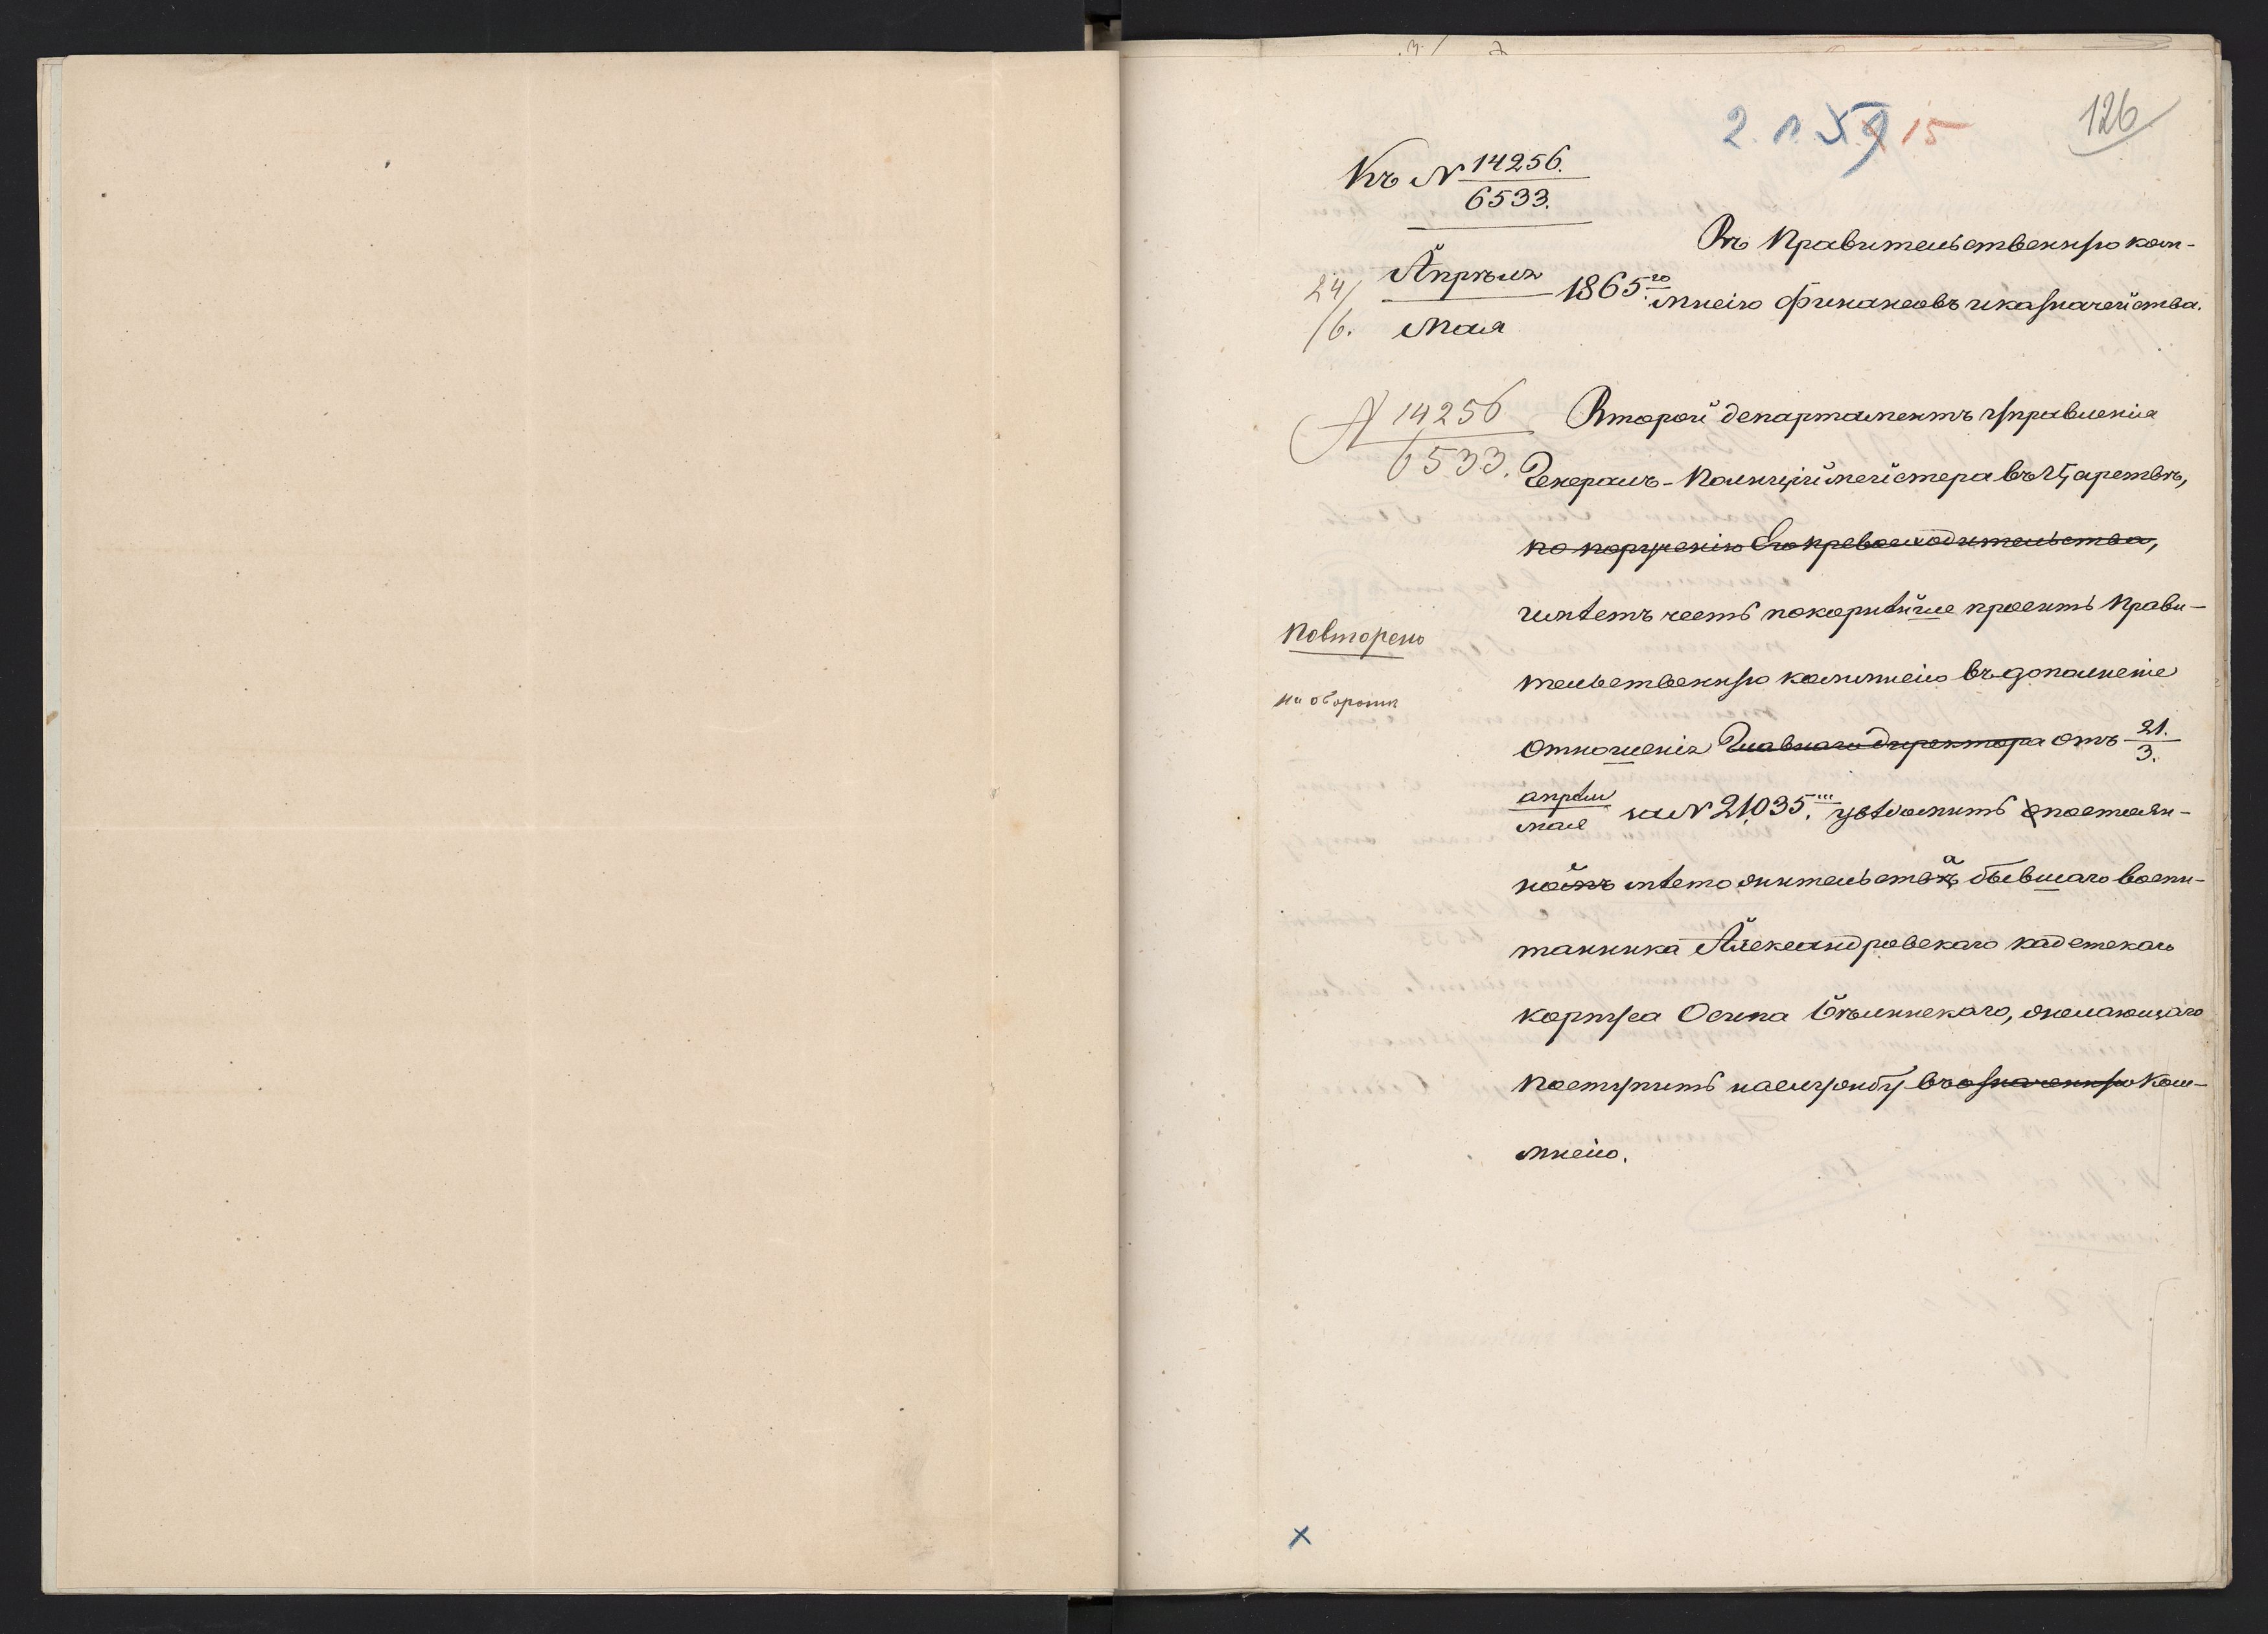 126
15
Къ № 14256.
6533.
Въ Правительственную ком-
24/6. Апрѣля
Мая 1865го
миcію Финансовъ и казначейства.
№ 14256
6533.
Второй департаментъ Управленія
Генералъ-Полиціймейстера въ Царствѣ,
по порученію Его Превосходительства,
имѣетъ честь покорнѣйше просить Прави-
Повторено
на оборотѣ
тельственную коммисію въ дополненіе
отношенія Главнаго Директора отъ 21.
3.
апрѣля
мая за № 21,035, увѣдомить о постоян-
номъ мѣстожительствѣ бывшаго воспи-
танника Александровскаго кадетскаго
корпуса Осипа Бѣлинскаго, желающаго
поступить на службу въ означенную Ком-
мисію.
x